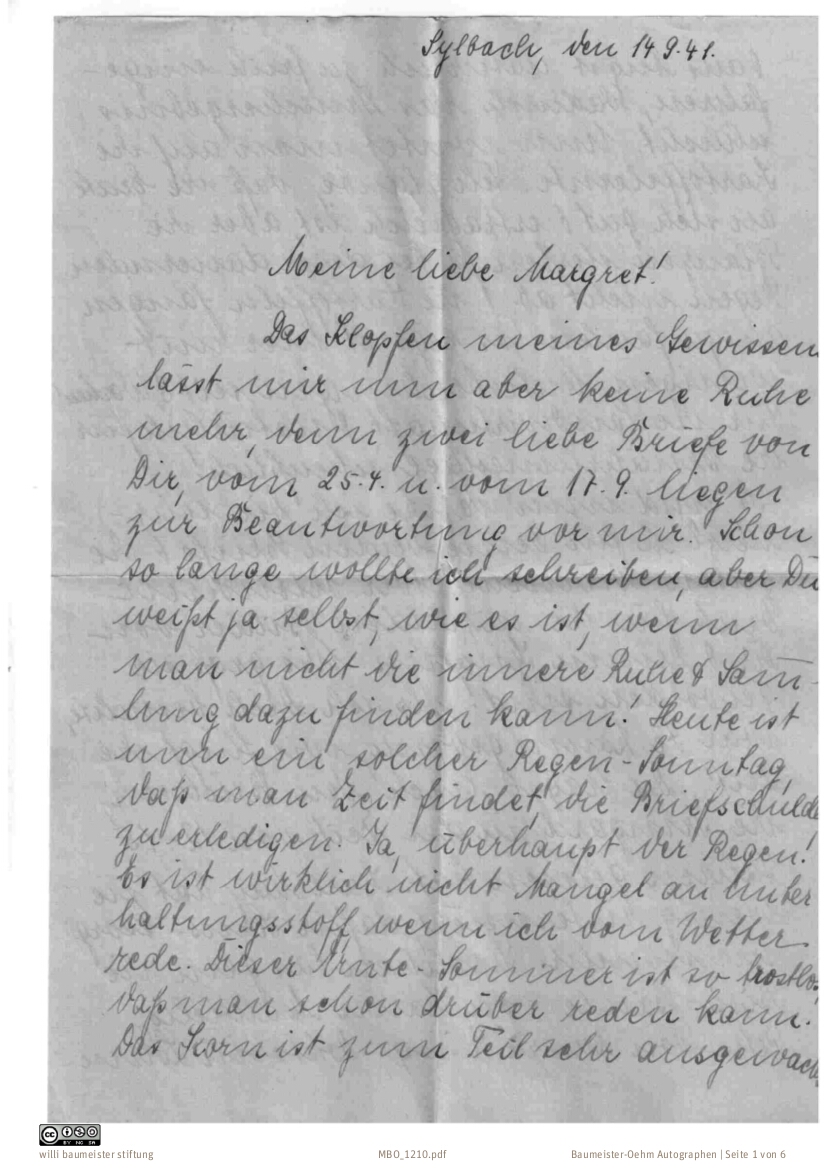 Sylbach, den 14.9.41.
Meine liebe Margret!
Das Klopfen meines Gewissen
lässt mir nun aber keine Ruhe
mehr, denn zwei liebe Briefe von
Dir, vom 25.4. u. vom 17.9. liegen
zur Beantwortung vor mir. Schon
so lange wollte ich schreiben, aber Du
weißt ja selbst, wie es ist, wenn
man nicht die innere Ruhe & Sam-
lung dazu finden kann! Heute ist
nun ein solcher Regen-Sonntag,
daß man Zeit findet, die Briefschulde
zu erledigen. Ja, überhaupt der Regen!
Es ist wirklich nicht Mangel an Unter
haltungsstoff wenn ich vom Wetter
rede. Dieser Ernte-Sommer ist so trostlos,
daß man schon drüber reden kann.
Das Korn ist zum Teil sehr ausgewach
willi baumeister stiftung
MBO_1210.pdf
Baumeister-Oehm Autographen | Seite 1 von 6
CC BY NC SA